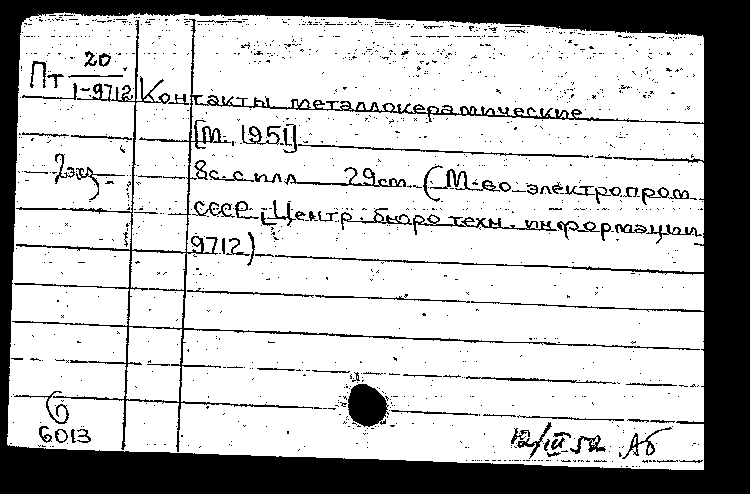 Пт 20
1-9712 Контакты металлокерамические
[М., 1951]
2экз. 8с. с илл 29см (М-во электропром
СССР, Центр. бюро техн. информации
9712)
6
6013
12/III 52 Аб